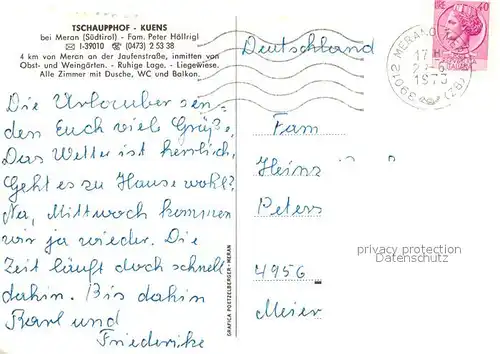 TSCHAUPPHOF - KUENS
bei Meran (Südtirol) - Fam. Peter Höllrigl
I-39010 (0473) 2 53 38
4 km von Meran an der Jaufenstraße, inmitten von
Obst- und Weingärten. - Ruhige Lage. - Liegewiese.
Alle Zimmer mit Dusche, WC und Balkon.
Die Urlauber sen-
den Euch viele Grüße.
Das Wetter ist herrlich.
Geht es zu Hause wohl?
Na, Mittwoch kommen
wir ja wieder. Die
Zeit läuft doch schnell
dahin. Bis dahin
Karl und
Friederike
GRAFICA POETZELBERGER - MERAN
Deutschland
LIRE 40
39012 MERANO
1973
(BZ)
Fam
Heinz
Peters
4956
Meier
privacy protection
Datenschutz